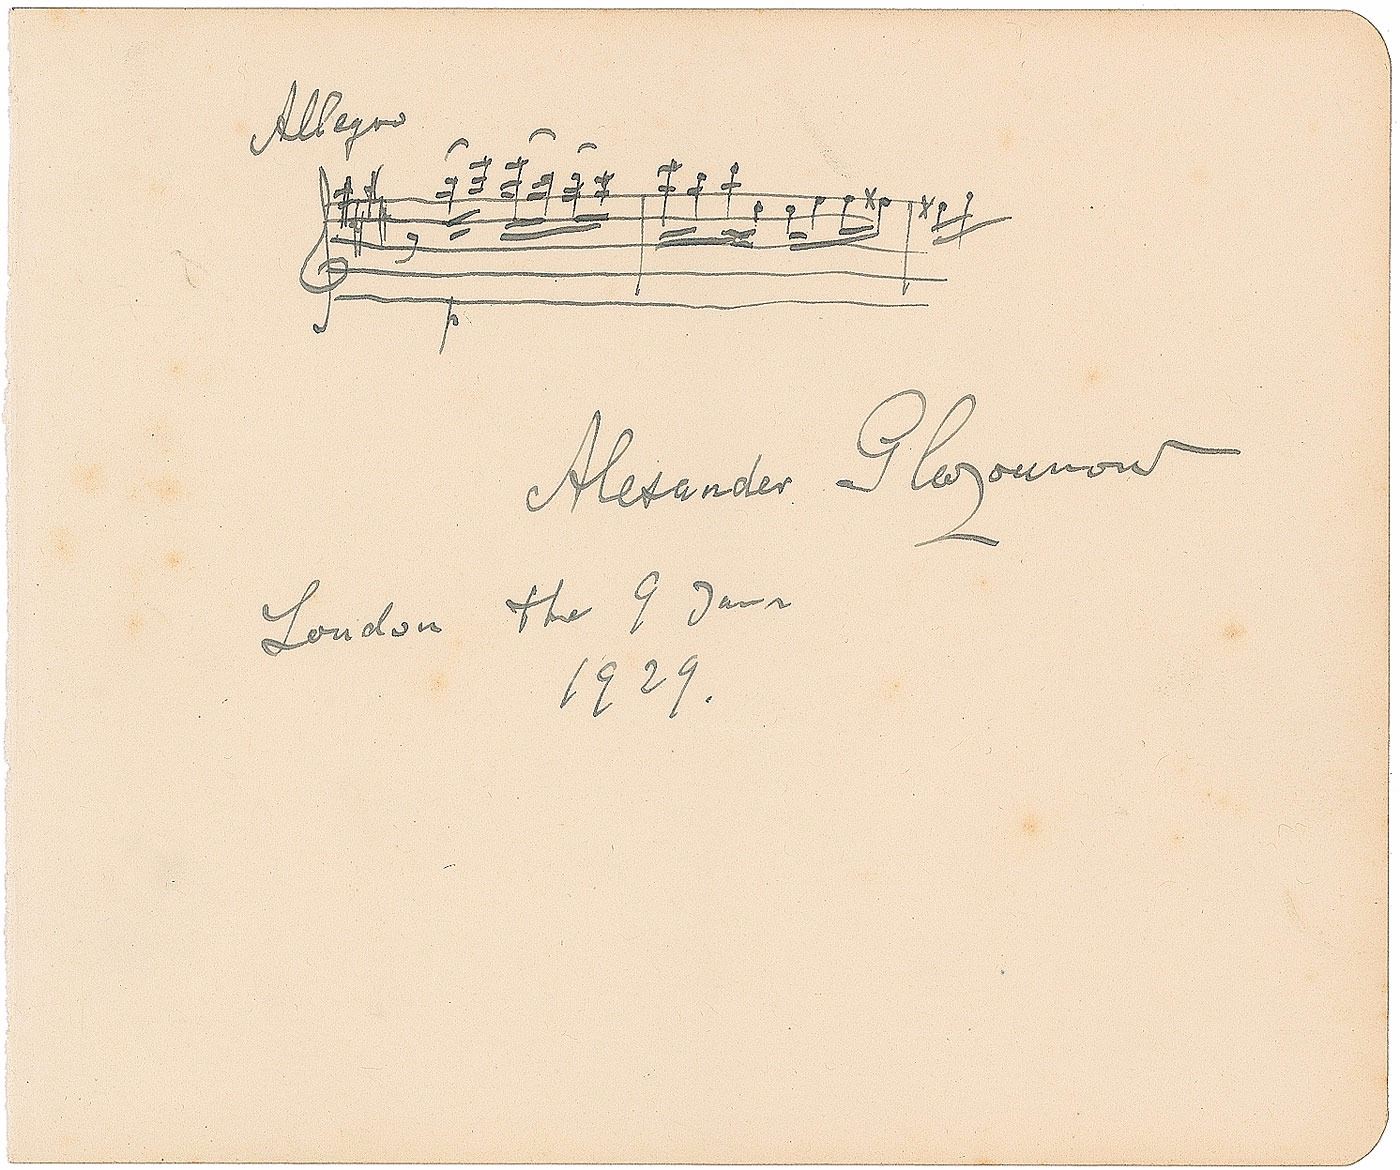 Allegro
p
Alexander Glazounow
London the 9 Janr
1929.